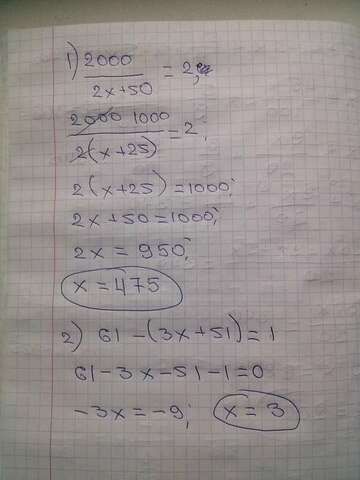 1) 2000 / 2x+50 = 2;
2000 1000 / 2(x+25) = 2;
2(x+25)=1000;
2x+50=1000;
2x = 950;
x = 475
2) 61-(3x+51)=1
61-3x-51-1=0
-3x=-9; x=3